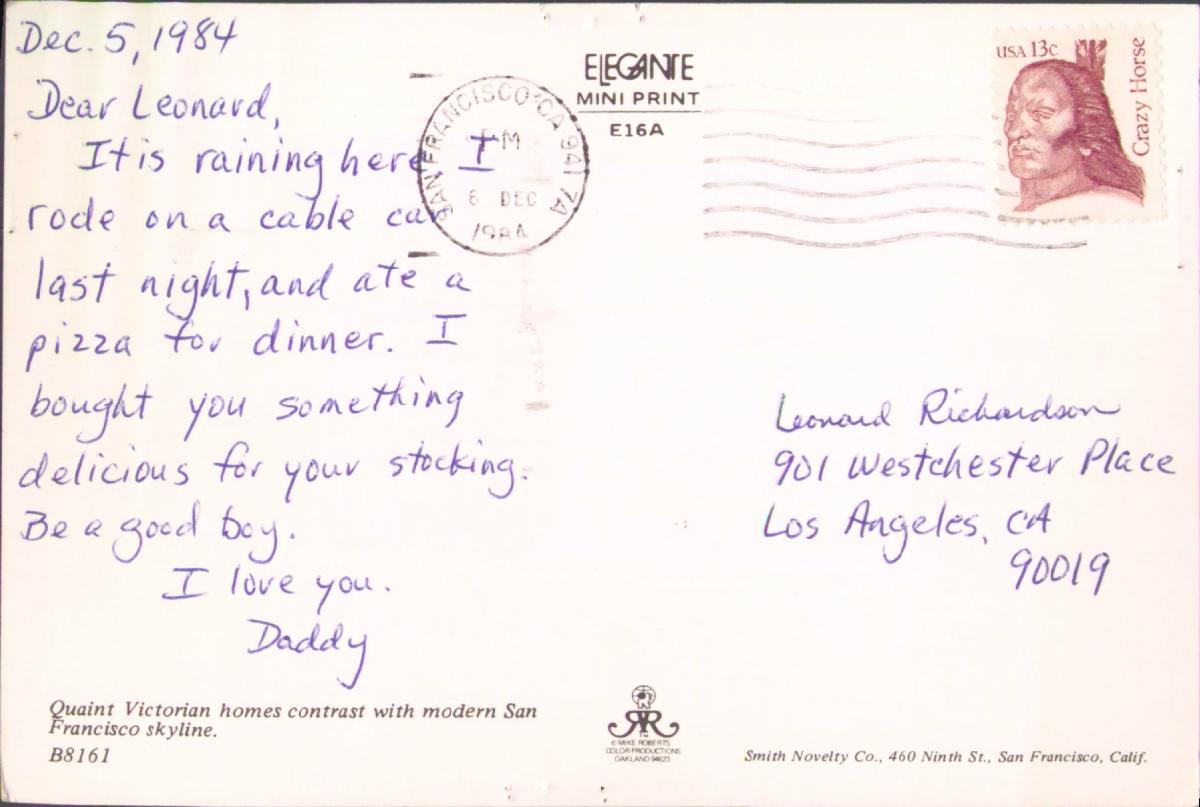 Dec. 5, 1984
Dear Leonard,
It is raining here I
rode on a cable car
last night, and ate a
pizza for dinner. I
bought you something
delicious for your stocking.
Be a good boy.
I love you.
Daddy
Quaint Victorian homes contrast with modern San
Francisco skyline.
B8161
ELEGANTE
MINI PRINT
E16A
SAN FRANCISCO CA 941 7A
PM
6 DEC
1984
USA 13c
Crazy Horse
Leonard Richardson
901 Westchester Place
Los Angeles, CA
90019
TM
© MIKE ROBERTS
COLOR PRODUCTIONS
OAKLAND 94623
Smith Novelty Co., 460 Ninth St., San Francisco, Calif.